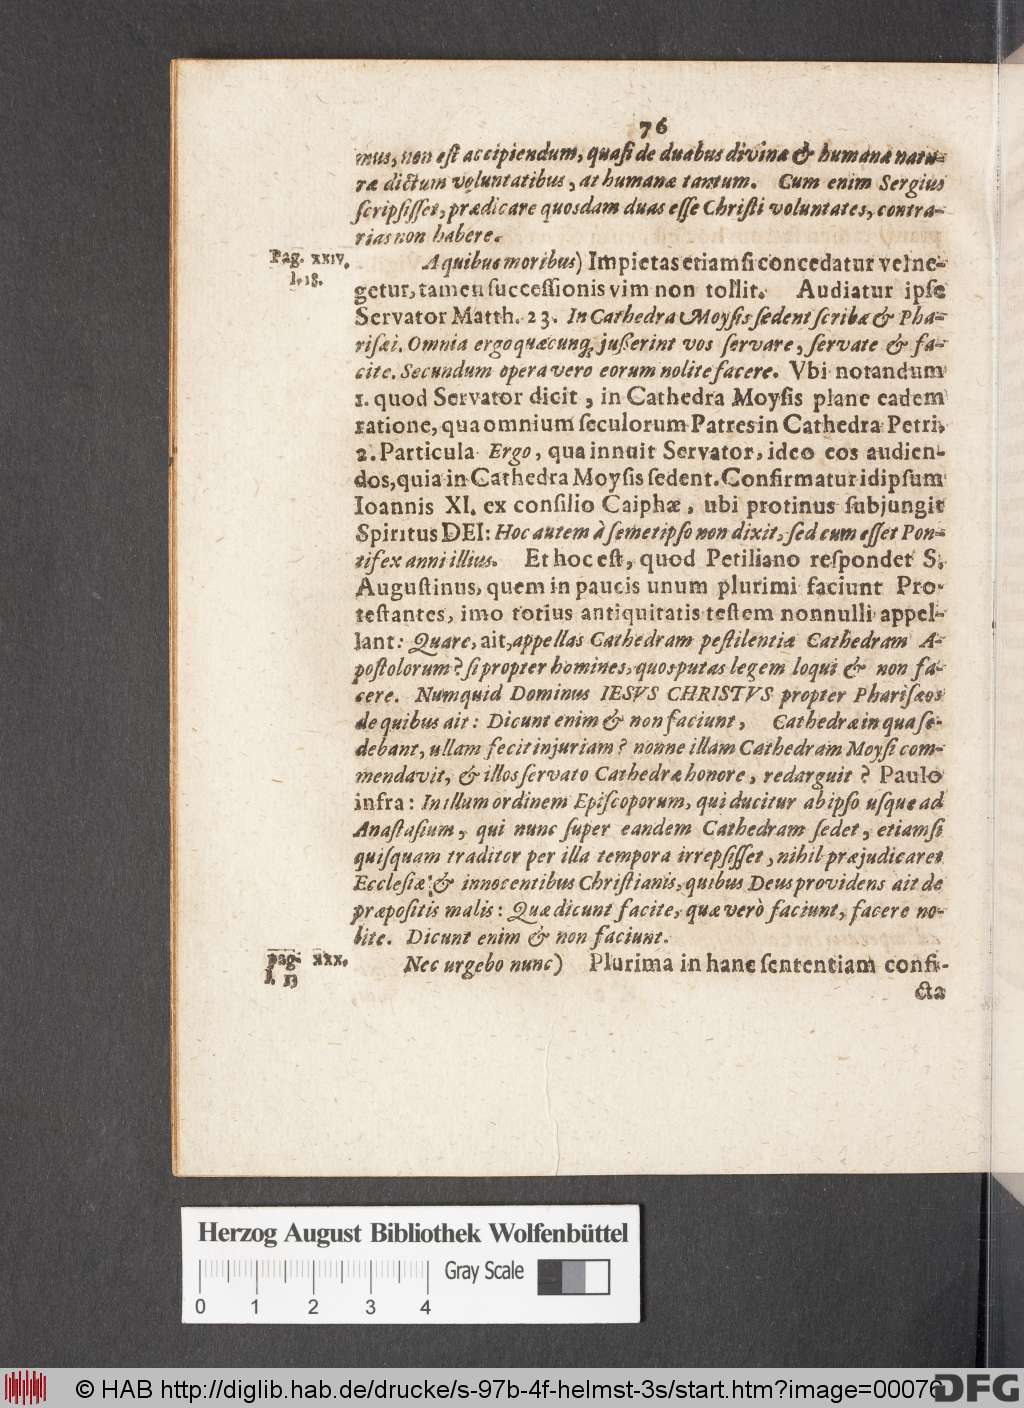 76
mus, non est accipiendum, quasi de duabus divinæ & humanæ natu-
ræ dictum voluntatibus, at humanæ tantum. Cum enim Sergius
scripsisset, prædicare quosdam duas esse Christi voluntates, contra-
rias non habere.
Pag. xxiv.
l. 18.
A quibus moribus) Impietas etiamsi concedatur vel ne-
getur, tamen successionis vim non tollit. Audiatur ipse
Servator Matth. 23. In Cathedra Moysis sedent scribæ & Pha-
risæi. Omnia ergo quæcunq; jusserint vos servare, servate & fa-
cite. Secundum opera vero eorum nolite facere. Vbi notandum
1. quod Servator dicit, in Cathedra Moysis plane eadem
ratione, qua omnium seculorum Patres in Cathedra Petri,
2. Particula Ergo, qua innuit Servator, ideo eos audien-
dos, quia in Cathedra Moysis sedent. Confirmatur id ipsum
Ioannis XI. ex consilio Caiphæ, ubi protinus subjungit
Spiritus DEI: Hoc autem à semetipso non dixit, sed cum esset Pon-
tifex anni illius. Et hoc est, quod Petiliano respondet S.
Augustinus, quem in paucis unum plurimi faciunt Pro-
testantes, imo totius antiquitatis testem nonnulli appel-
lant: Quare, ait, appellas Cathedram pestilentiæ Cathedram A-
postolorum? si propter homines, quos putas legem loqui & non fa-
cere. Numquid Dominus IESVS CHRISTVS propter Pharisæos
de quibus ait: Dicunt enim & non faciunt, Cathedræ in qua se-
debant, ullam fecit injuriam? nonne illam Cathedram Moysi com-
mendavit, & illos servato Cathedræ honore, redarguit? Paulo
infra: In illum ordinem Episcoporum, qui ducitur ab ipso usque ad
Anastasium, qui nunc super eandem Cathedram sedet, etiamsi
quisquam traditor per illa tempora irrepsisset, nihil præjudicaret
Ecclesiæ & innocentibus Christianis, quibus Deus providens ait de
præpositis malis: Quæ dicunt facite, quæ verò faciunt, facere no-
lite. Dicunt enim & non faciunt.
pag. xxx.
l. 13
Nec urgebo nunc) Plurima in hanc sententiam confi-
cta
Herzog August Bibliothek Wolfenbüttel
Gray Scale
0 1 2 3 4
© HAB http://diglib.hab.de/drucke/s-97b-4f-helmst-3s/start.htm?image=00076
DFG